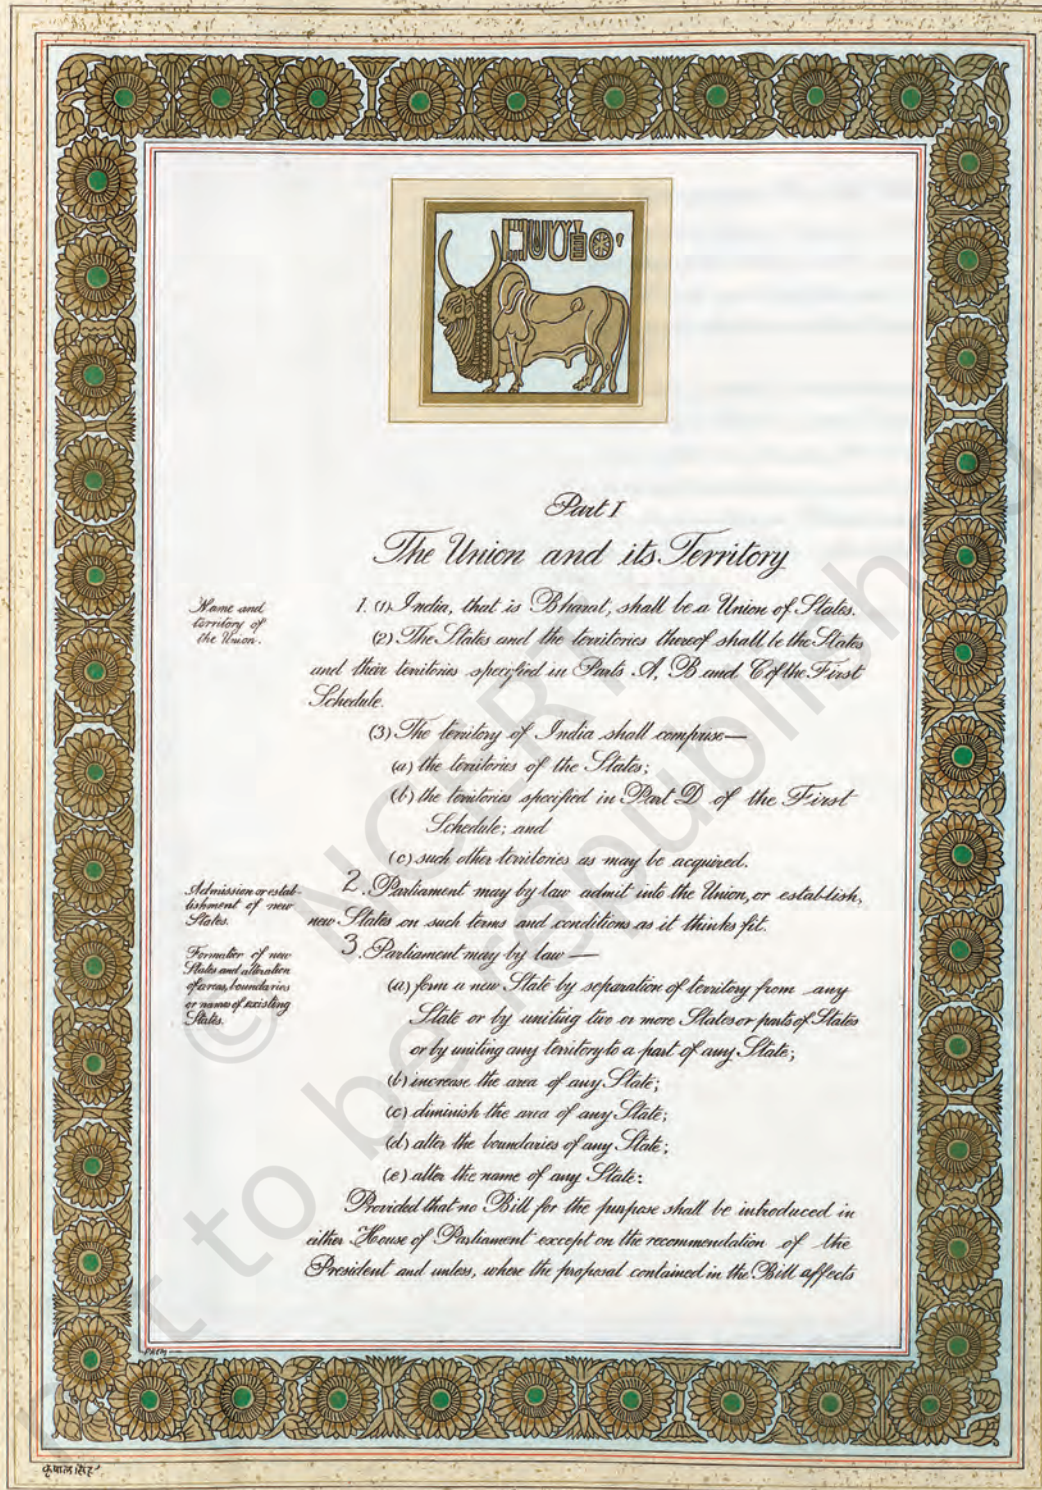 Part I
The Union and its Territory
Name and
territory of
the Union.
1. (1) India, that is Bharat, shall be a Union of States.
(2) The States and the territories thereof shall be the States
and their territories specified in Parts A, B and C of the First
Schedule.
(3) The territory of India shall comprise—
(a) the territories of the States;
(b) the territories specified in Part D of the First
Schedule; and
(c) such other territories as may be acquired.
Admission or estab-
lishment of new
States.
2. Parliament may by law admit into the Union, or establish,
new States on such terms and conditions as it thinks fit.
Formation of new
States and alteration
of areas, boundaries
or names of existing
States.
3. Parliament may by law —
(a) form a new State by separation of territory from any
State or by uniting two or more States or parts of States
or by uniting any territory to a part of any State;
(b) increase the area of any State;
(c) diminish the area of any State;
(d) alter the boundaries of any State;
(e) alter the name of any State:
Provided that no Bill for the purpose shall be introduced in
either House of Parliament except on the recommendation of the
President and unless, where the proposal contained in the Bill affects
© NCERT
not to be republished